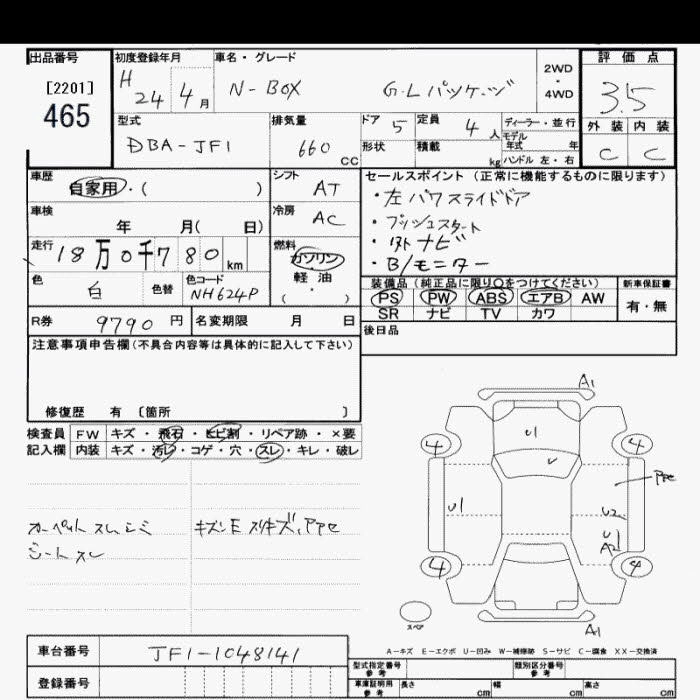 出品番号
[2201]
465
初度登録年月
H 24 4 月
車名・グレード
N-BOX G・Lパッケージ
2WD
・
4WD
評価点
3.5
外装 内装
C C
型式
DBA-JF1
排気量
660 CC
ドア 5
定員 4 人
形状
積載 kg
ディーラー・並行
モデル年式 年
ハンドル 左・右
車歴
自家用・( )
シフト AT
車検
年 月( 日)
冷房 AC
走行
18万0千780 km
燃料
ガソリン
軽油
・
( )
色 白
色替
色コード
NH624P
R券 9790 円
名変期限 月 日
セールスポイント(正常に機能するものに限ります)
・左パワスライドドア
・プッシュスタート
・外ナビ
・B/モニター
装備品(純正品に限り○をつけてください)
PS PW ABS エアB AW
SR ナビ TV カワ
新車保証書
有・無
後日品
注意事項申告欄(不具合内容等は具体的に記入して下さい)
修復歴 有 〔箇所 〕
検査員
記入欄
FW キズ・飛石・ヒビ割・リペア跡・×要
内装 キズ・汚レ・コゲ・穴・スレ・キレ・破レ
カーペットスレシミ
シートスレ
キズ、E スリキズ、
A1
U1
4 4
U1
U2
U1
A2
4 4
スペア
A1
A-キズ E-エクボ U-凹み W-補修跡 S-サビ C-腐食 XX-交換済
車台番号
JF1-1048141
登録番号
型式指定番号
参考
類別区分番号
参考
車庫証明用
参考
長さ cm
幅 cm
高さ cm